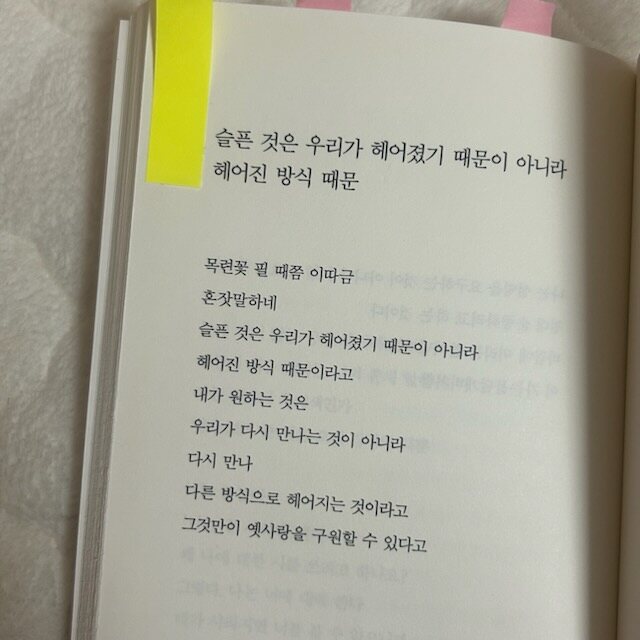 슬픈 것은 우리가 헤어졌기 때문이 아니라
헤어진 방식 때문
목련꽃 필 때쯤 이따금
혼잣말하네
슬픈 것은 우리가 헤어졌기 때문이 아니라
헤어진 방식 때문이라고
내가 원하는 것은
우리가 다시 만나는 것이 아니라
다시 만나
다른 방식으로 헤어지는 것이라고
그것만이 옛사랑을 구원할 수 있다고